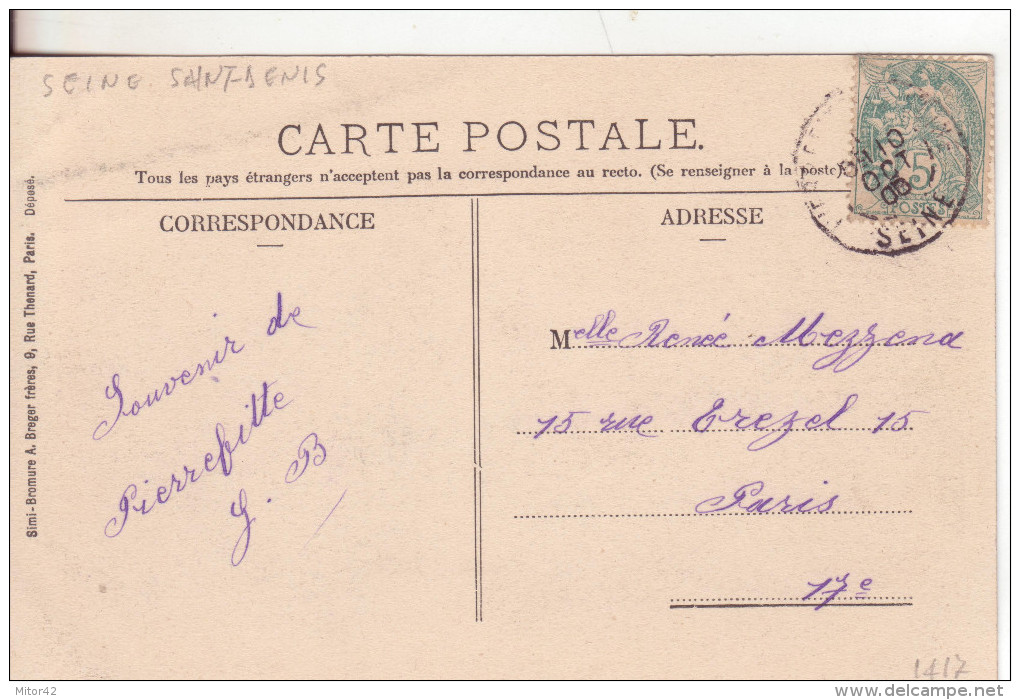 SEINE. SAINT-DENIS
CARTE POSTALE.
Tous les pays étrangers n'acceptent pas la correspondance au recto. (Se renseigner à la poste).
CORRESPONDANCE
ADRESSE
10
OCT
SEINE
5
POSTES
Simi-Bromure A. Breger frères, 9, Rue Thenard, Paris. Déposé.
Souvenir de
Pierrefitte
G. B
Melle Renée Mezzena
15 rue Erezel 15
Paris
17e
1417
Mitor42
delcampe.net